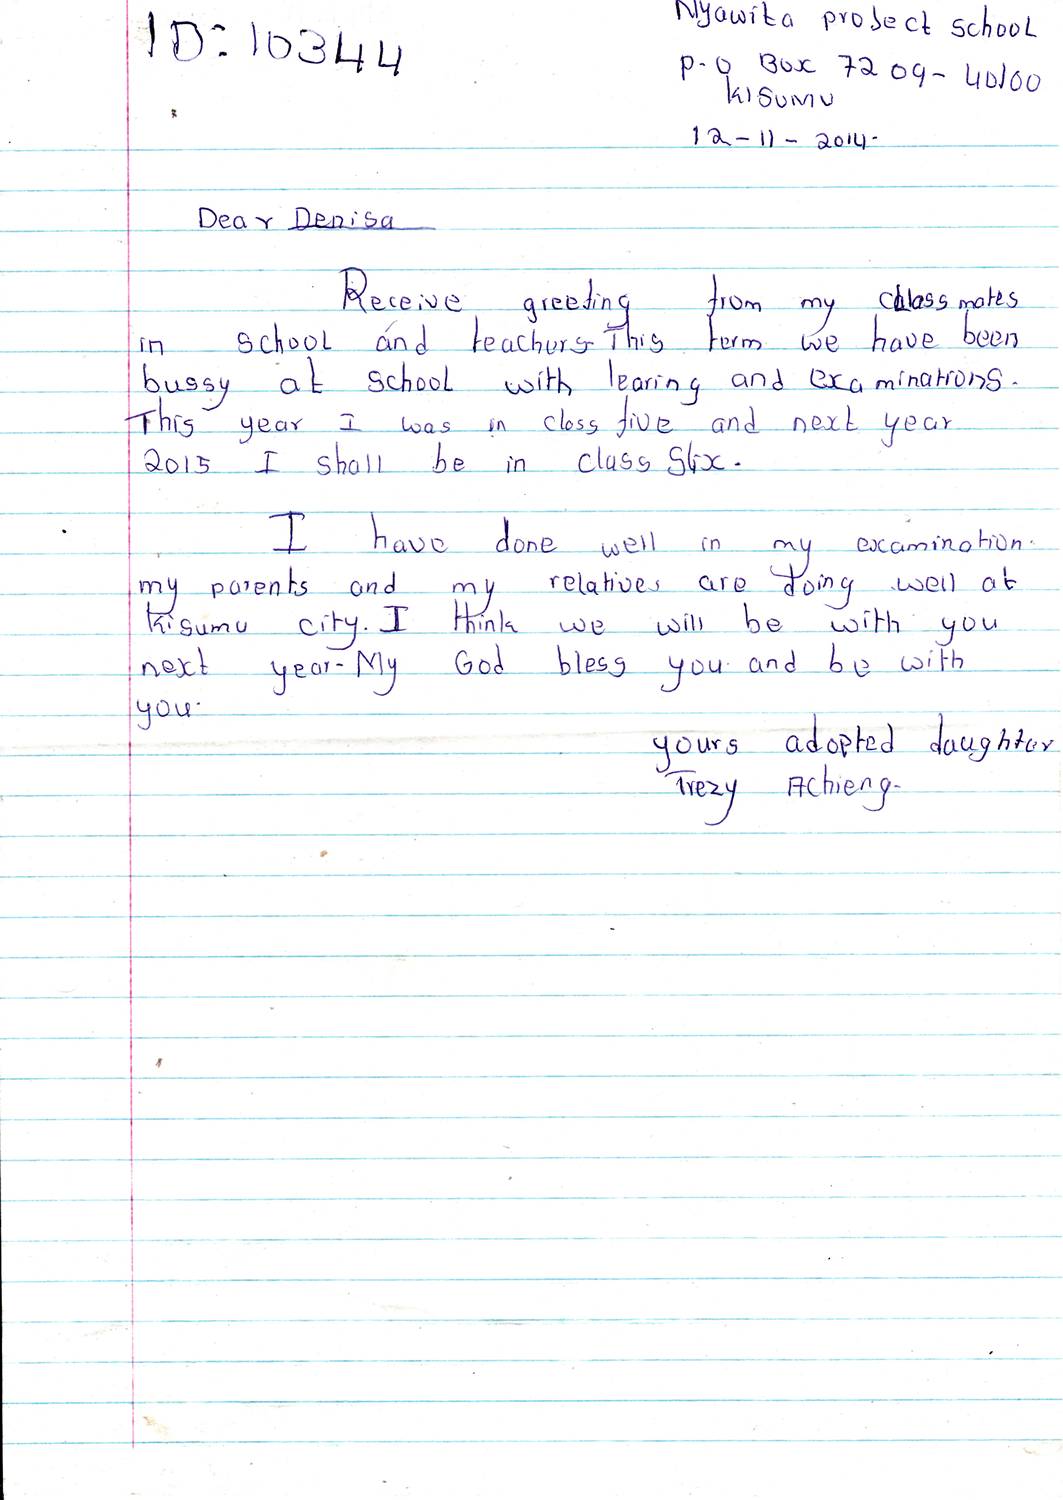 ID: 10344
Nyawita project school
P.O Box 7209-40100
KISUMU
12-11-2014.
Dear Denisa
Receive greeting from my classmates
in school and teachers. This term we have been
bussy at school with learing and examinations.
This year I was in class five and next year
2015 I shall be in class Six.
I have done well in my examination.
my parents and my relatives are doing well at
Kisumu city. I think we will be with you
next year. My God bless you and be with
you.
yours adopted daughter
Trezy Achieng.